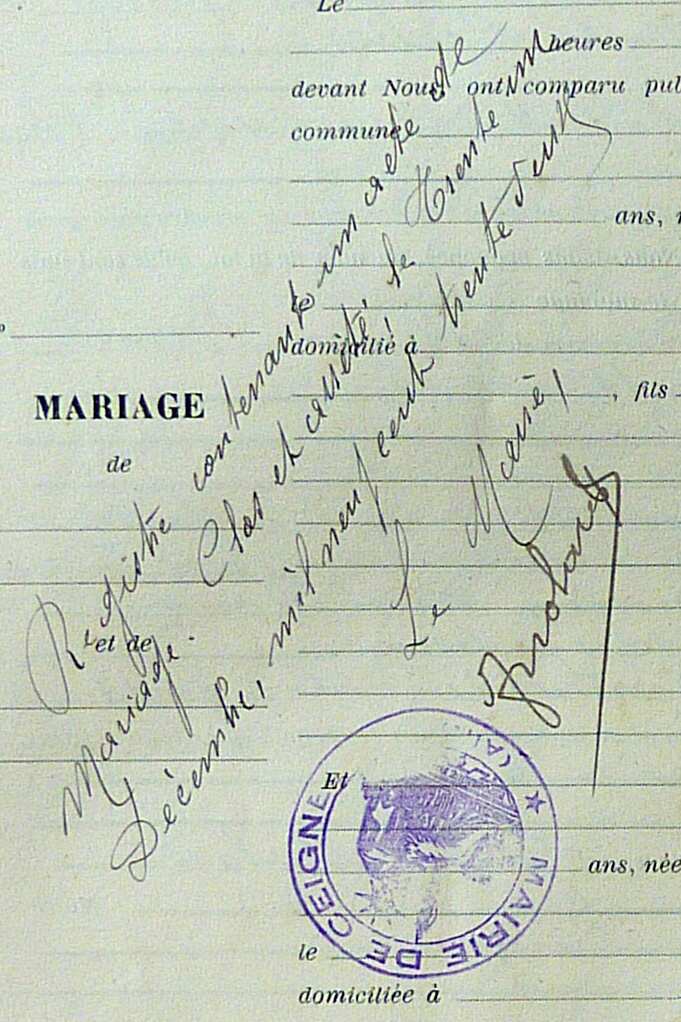 Le
heures
devant Nous, ont comparu pub
commune
ans, n
domicilié à
MARIAGE
, fils
de
et de
Et
ans, née
le
domiciliée à
Registre contenant un acte de
Mariage. Clos et arrêté, le Trente un
Décembre, mil neuf cent trente deux
Le Maire,
★ MAIRIE DE CEIGNE (AIN)